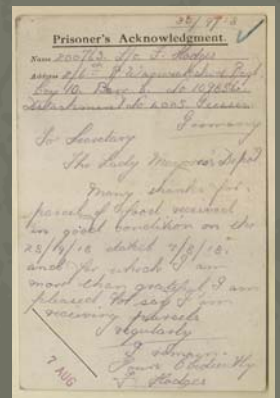 Prisoner's Acknowledgment.
Name 200763. L/c F. Hodges
2/6th R. Warwickshire Regt
Germany
To Secretary
The Lady Mayoress Depot
Many thanks for
parcel of food received
in good condition on the
28/9/18 dated 7/8/18.
and for which I am
more than grateful I am
pleased to say I am
receiving parcels
regularly
I remain
Yours Obediently
F. Hodges
7 AUG